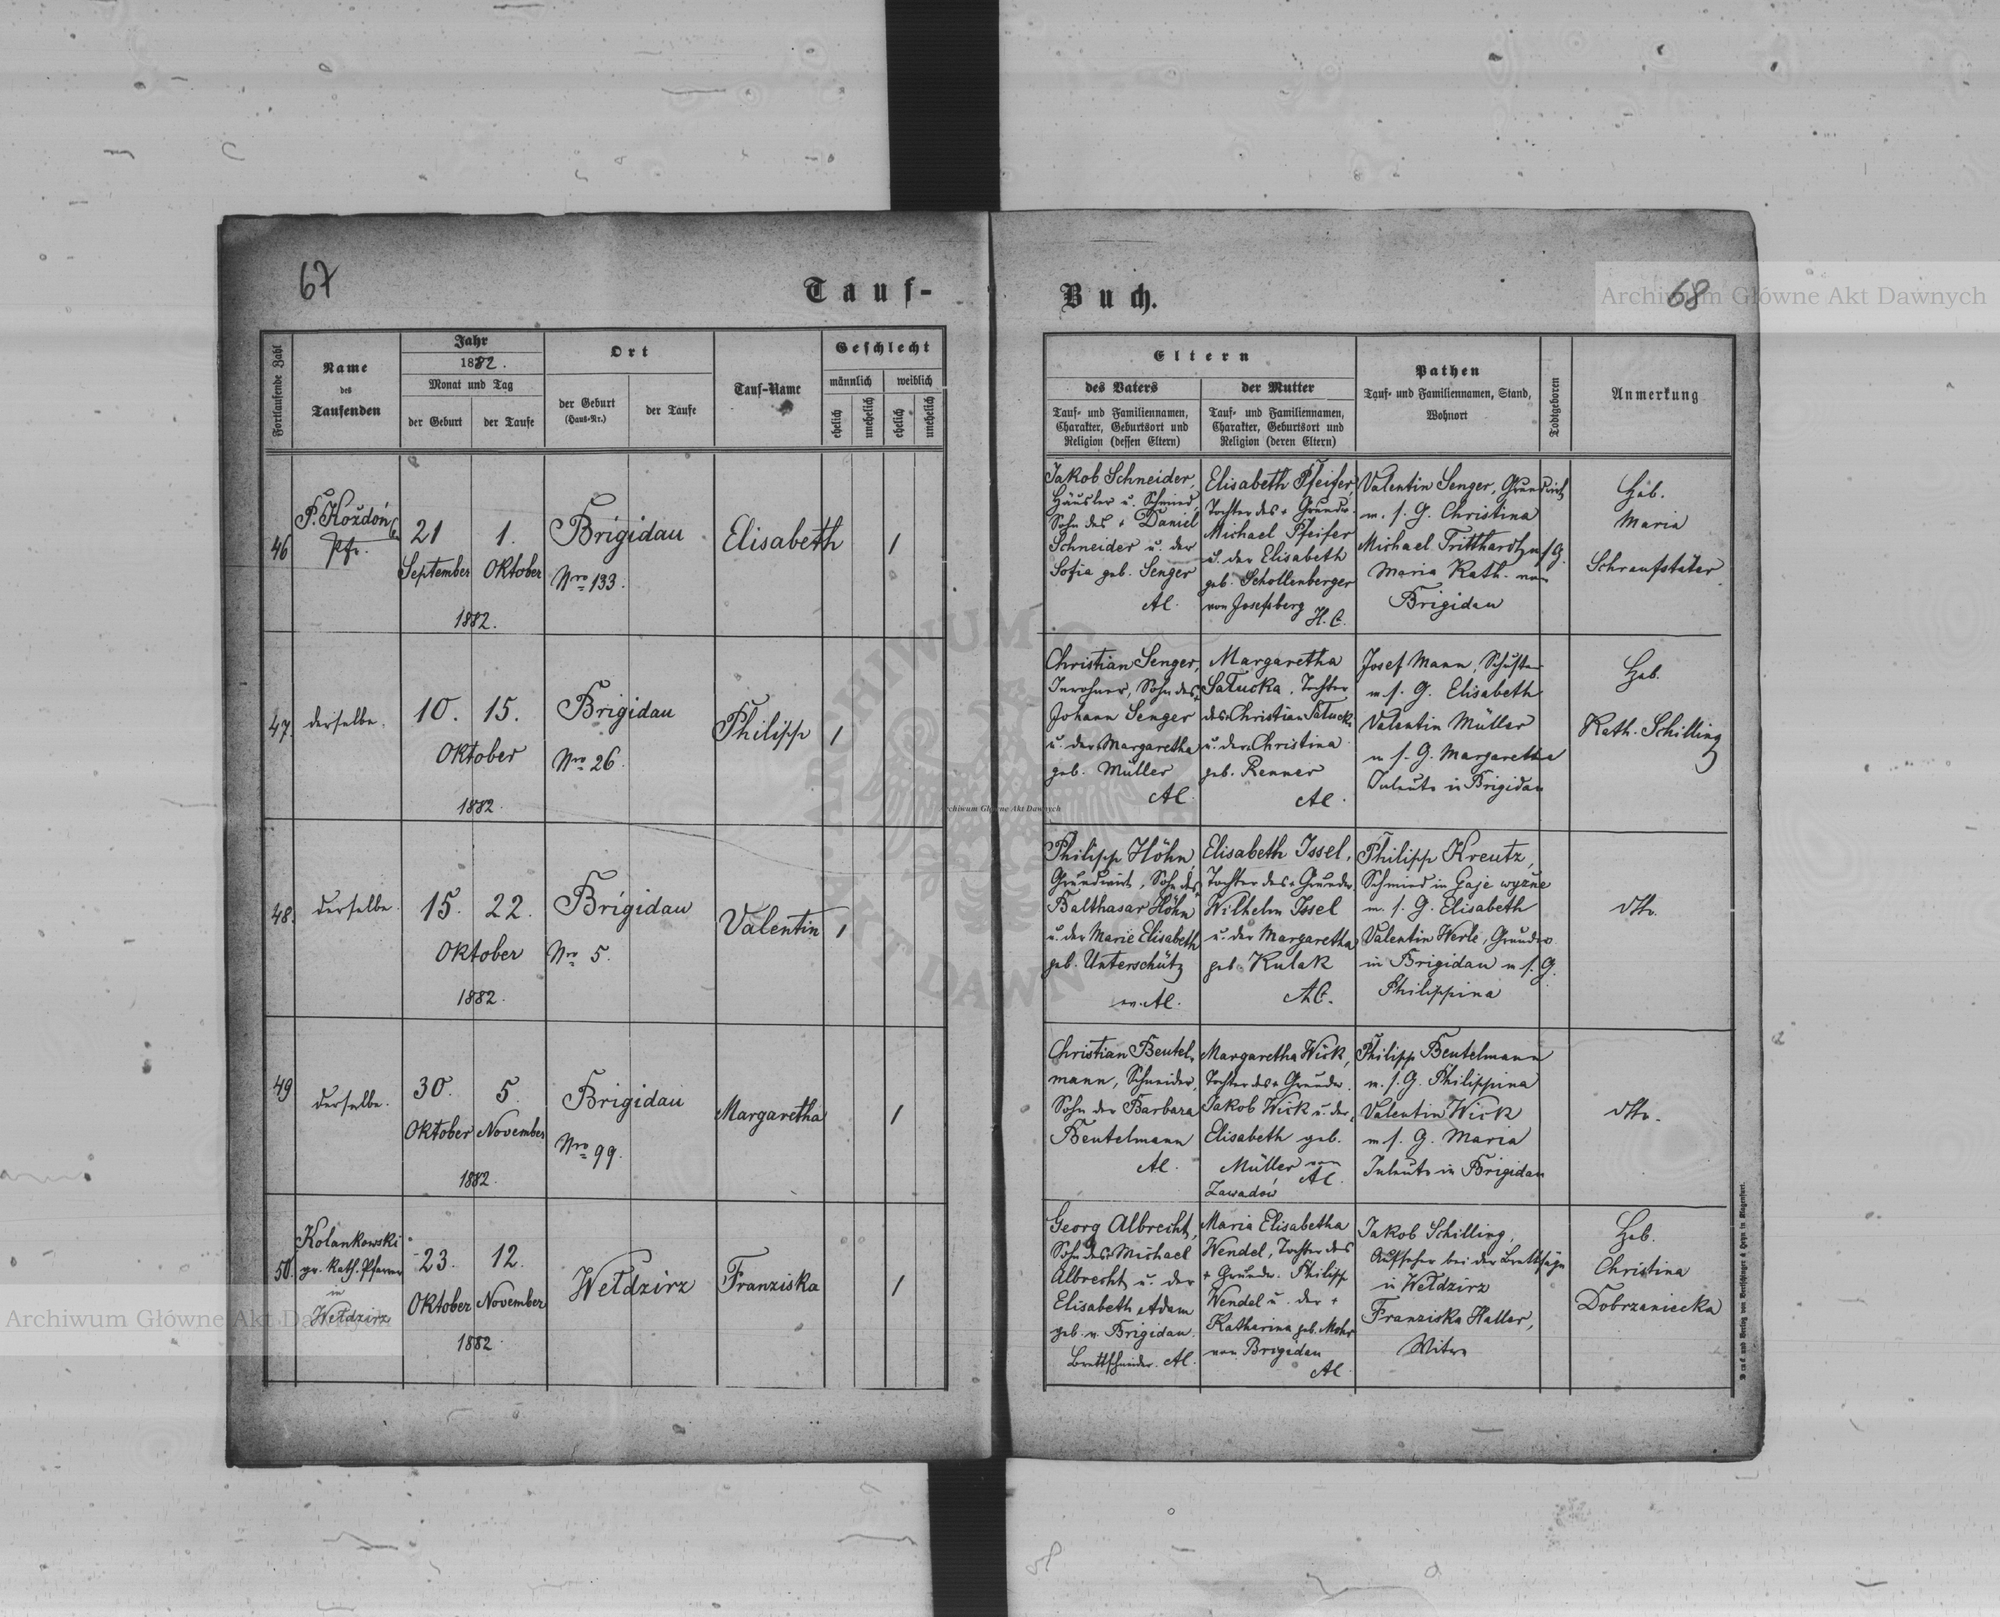 67
Tauf-
Buch.
68
Archiwum Główne Akt Dawnych
Fortlaufende Zahl
Name
des
Taufenden
Jahr
1882.
Monat und Tag
der Geburt
der Taufe
Ort
der Geburt
(Haus-Nr.)
der Taufe
Tauf-Name
Geschlecht
männlich
weiblich
ehelich
unehelich
ehelich
unehelich
Eltern
des Vaters
Tauf- und Familiennamen,
Charakter, Geburtsort und
Religion (dessen Eltern)
der Mutter
Tauf- und Familiennamen,
Charakter, Geburtsort und
Religion (deren Eltern)
Pathen
Tauf- und Familiennamen, Stand,
Wohnort
Todtgeboren
Anmerkung
46
P. Koždoń
Pfr.
21
September
1.
Oktober
1882.
Brigidau
Nro 133.
Elisabeth
1
Jakob Schneider,
Häusler u. Schmied,
Sohn des + Daniel
Schneider u. der
Sofia geb. Senger
AC.
Elisabeth Pfeifer,
Tochter des + Grundw.
Michael Pfeifer
u. der Elisabeth
geb. Schollenberger
von Josefsberg
H. C.
Valentin Senger, Grundwirth
m. s. G. Christina
Michael Tritthardt m s G.
Maria Kath. von
Brigidau
Heb.
Maria
Schraufstäter
47
derselbe.
10.
15.
Oktober
1882.
Brigidau
Nro 26.
Philipp
1
Christian Senger,
Inwohner, Sohn des
Johann Senger
u. der Margaretha
geb. Müller
AC.
Margaretha
Satucka, Tochter
des Christian Satucka
u. der Christina
geb. Renner
AC.
Josef Mann, Schuster
m. s. G. Elisabeth
Valentin Müller
m s. G. Margaretha
Inleute in Brigidau
Heb.
Kath. Schilling
48.
derselbe.
15.
22.
Oktober
1882.
Brigidau
Nro 5.
Valentin
1
Philipp Höhn,
Grundwirt, Sohn des
Balthasar Höhn
u. der Marie Elisabeth
geb. Unterschütz
ev. AC.
Elisabeth Issel,
Tochter des + Grundw.
Wilhelm Issel
u. der Margaretha
geb. Kulak
A.C.
Philipp Kreutz,
Schmied in Gaje wyžne
m. s. G. Elisabeth
Valentin Werle, Grundw.
in Brigidau m s. G.
Philippina
dto.
49
derselbe.
30.
Oktober
5.
November
1882.
Brigidau
Nro 99.
Margaretha
1
Christian Beutel-
mann, Schneider,
Sohn der Barbara
Beutelmann
AC.
Margaretha Wick,
Tochter des + Grundw.
Jakob Wick u. der
Elisabeth geb.
Müller von
Zawadów
AC.
Philipp Beutelmann
m. s. G. Philippina
Valentin Wick
m s. G. Maria
Inleute in Brigidau
dto.
50.
Kolankowski
gr. kath. Pfarrer
in
Wełdzirz
23.
Oktober
12.
November
1882.
Wełdzirz
Franziska
1
Georg Albrecht,
Sohn des Michael
Albrecht u. der
Elisabeth Adam
geb. v. Brigidau.
Brettschneider. AC.
Maria Elisabetha
Wendel, Tochter des
+ Grundw. Philipp
Wendel u. der +
Katharina geb. Mohr
von Brigidau
AC.
Jakob Schilling,
Aufseher bei der Brettsäge
in Wełdzirz
Franziska Haller,
Witwe
Heb.
Christina
Dobrzaniecka
Druck und Verlag von Bertschinger & Heyn in Klagenfurt.
ARCHIWUM GŁÓWNE AKT DAWNYCH
Archiwum Główne Akt Dawnych
Archiwum Główne Akt Dawnych